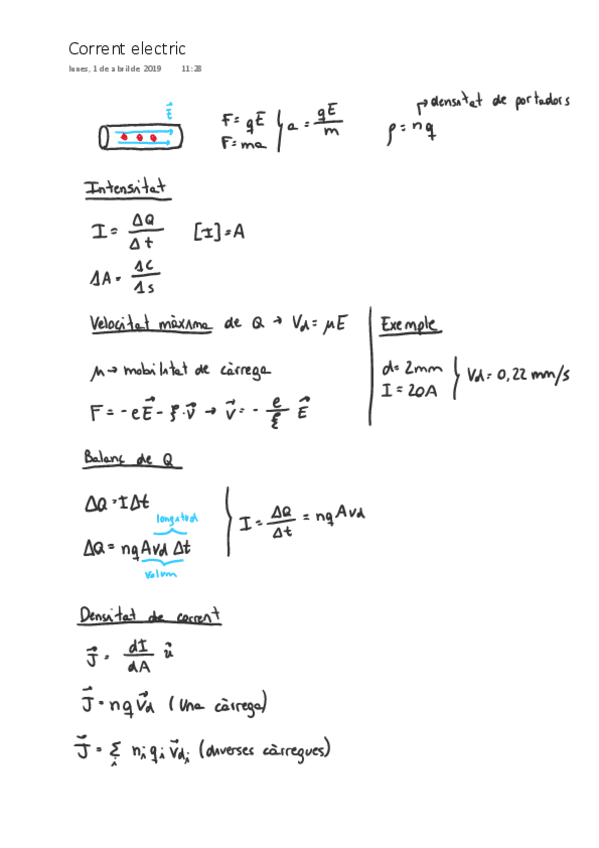 Corrent electric
lunes, 1 de abril de 2019 11:28
E⃗
F = qE
F = ma } a = qE/m
densitat de portadors
ρ = nq
Intensitat
I = ΔQ/Δt [I] = A
1A = 1C/1s
Velocitat màxima de Q → Vd = μE
μ → mobilitat de càrrega
F = -eE⃗ - ξ·v⃗ → v⃗ = - e/ξ E⃗
Exemple
d = 2mm
I = 20A } Vd = 0,22 mm/s
Balanç de Q
ΔQ = IΔt
longitud
ΔQ = nqAvdΔt
volum
I = ΔQ/Δt = nqAvd
Densitat de corrent
J⃗ = dI/dA û
J⃗ = nqv⃗d (Una càrrega)
J⃗ = Σi niqiv⃗di (diverses càrregues)